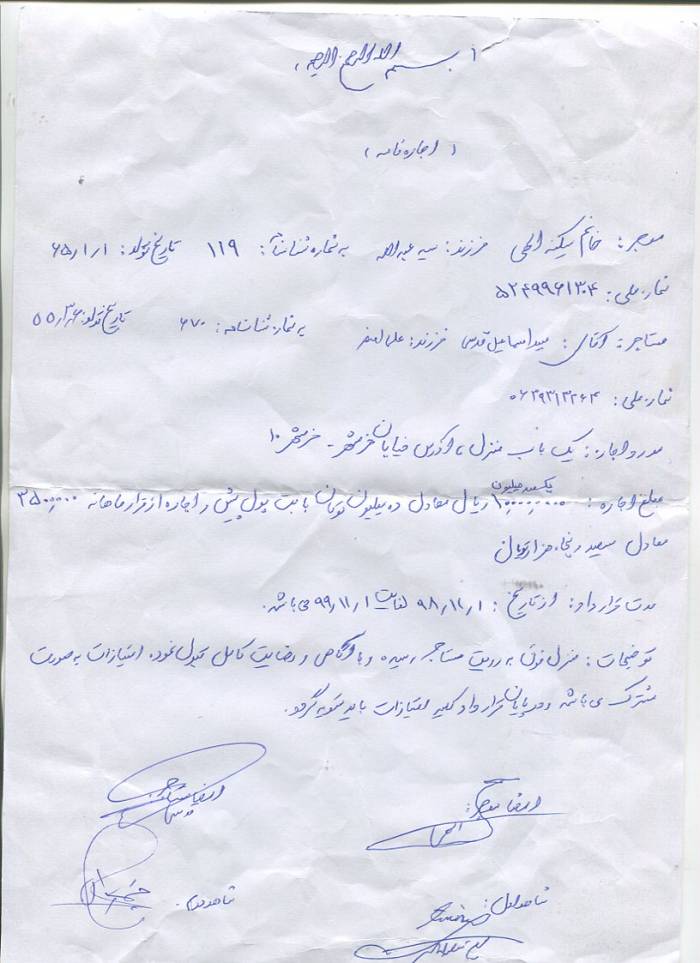 بسم الله الرحمن الرحیم
( اجاره نامه )
موجر: خانم سکینه الهی فرزند: سید عبدالله به شماره شناسنامه: ۱۱۹ تاریخ تولد: ۶۵/۱/۱
شماره ملی: ۵۲۴۹۹۶۱۳۰۴
مستاجر: آقای: سید اسماعیل قدسی فرزند: علی اصغر به شماره شناسنامه: ۶۷۰ تاریخ تولد:
شماره ملی:
مورد اجاره: یک باب منزل، آدرس خیابان خرمشهر - خرمشهر ۱۰
مبلغ اجاره: یکصد میلیون ۱۰۰،۰۰۰،۰۰۰ ریال معادل ده میلیون تومان بابت پول پیش و اجاره از قرار ماهانه ۳۵۰۰،۰۰۰
معادل سیصد و پنجاه هزار تومان
مدت قرارداد: از تاریخ: ۹۸/۱۱/۱ لغایت ۹۹/۱۱/۱ می باشد.
توضیحات: منزل فوق به رویت مستاجر رسیده و با آگاهی و رضایت کامل قبول نموده امتیازات به صورت
مشترک می باشد و در پایان قرارداد کلیه امتیازات باید تسویه گردد.
امضا موجر: امضا مستاجر
شاهد اول: شاهد دوم: